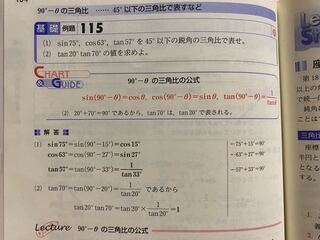 90°−θの三角比 …… 45°以下の三角比で表すなど
基礎 例題 115
(1) sin75°, cos63°, tan57° を 45°以下の鋭角の三角比で表せ。
(2) tan20°tan70° の値を求めよ。
CHART & GUIDE
90°−θの三角比の公式
sin(90°−θ)=cosθ, cos(90°−θ)=sinθ, tan(90°−θ)=1/tanθ
(2) 20°+70°=90° であるから, tan70° は, tan20° で表される。
解答
(1) sin75°=sin(90°−15°)=cos15°
←75°+15°=90°
cos63°=cos(90°−27°)=sin27°
←63°+27°=90°
tan57°=tan(90°−33°)=1/tan33°
←57°+33°=90°
(2) tan70°=tan(90°−20°)=1/tan20° であるから
tan20°tan70°=tan20°×1/tan20°=1
Lecture 90°−θの三角比の公式